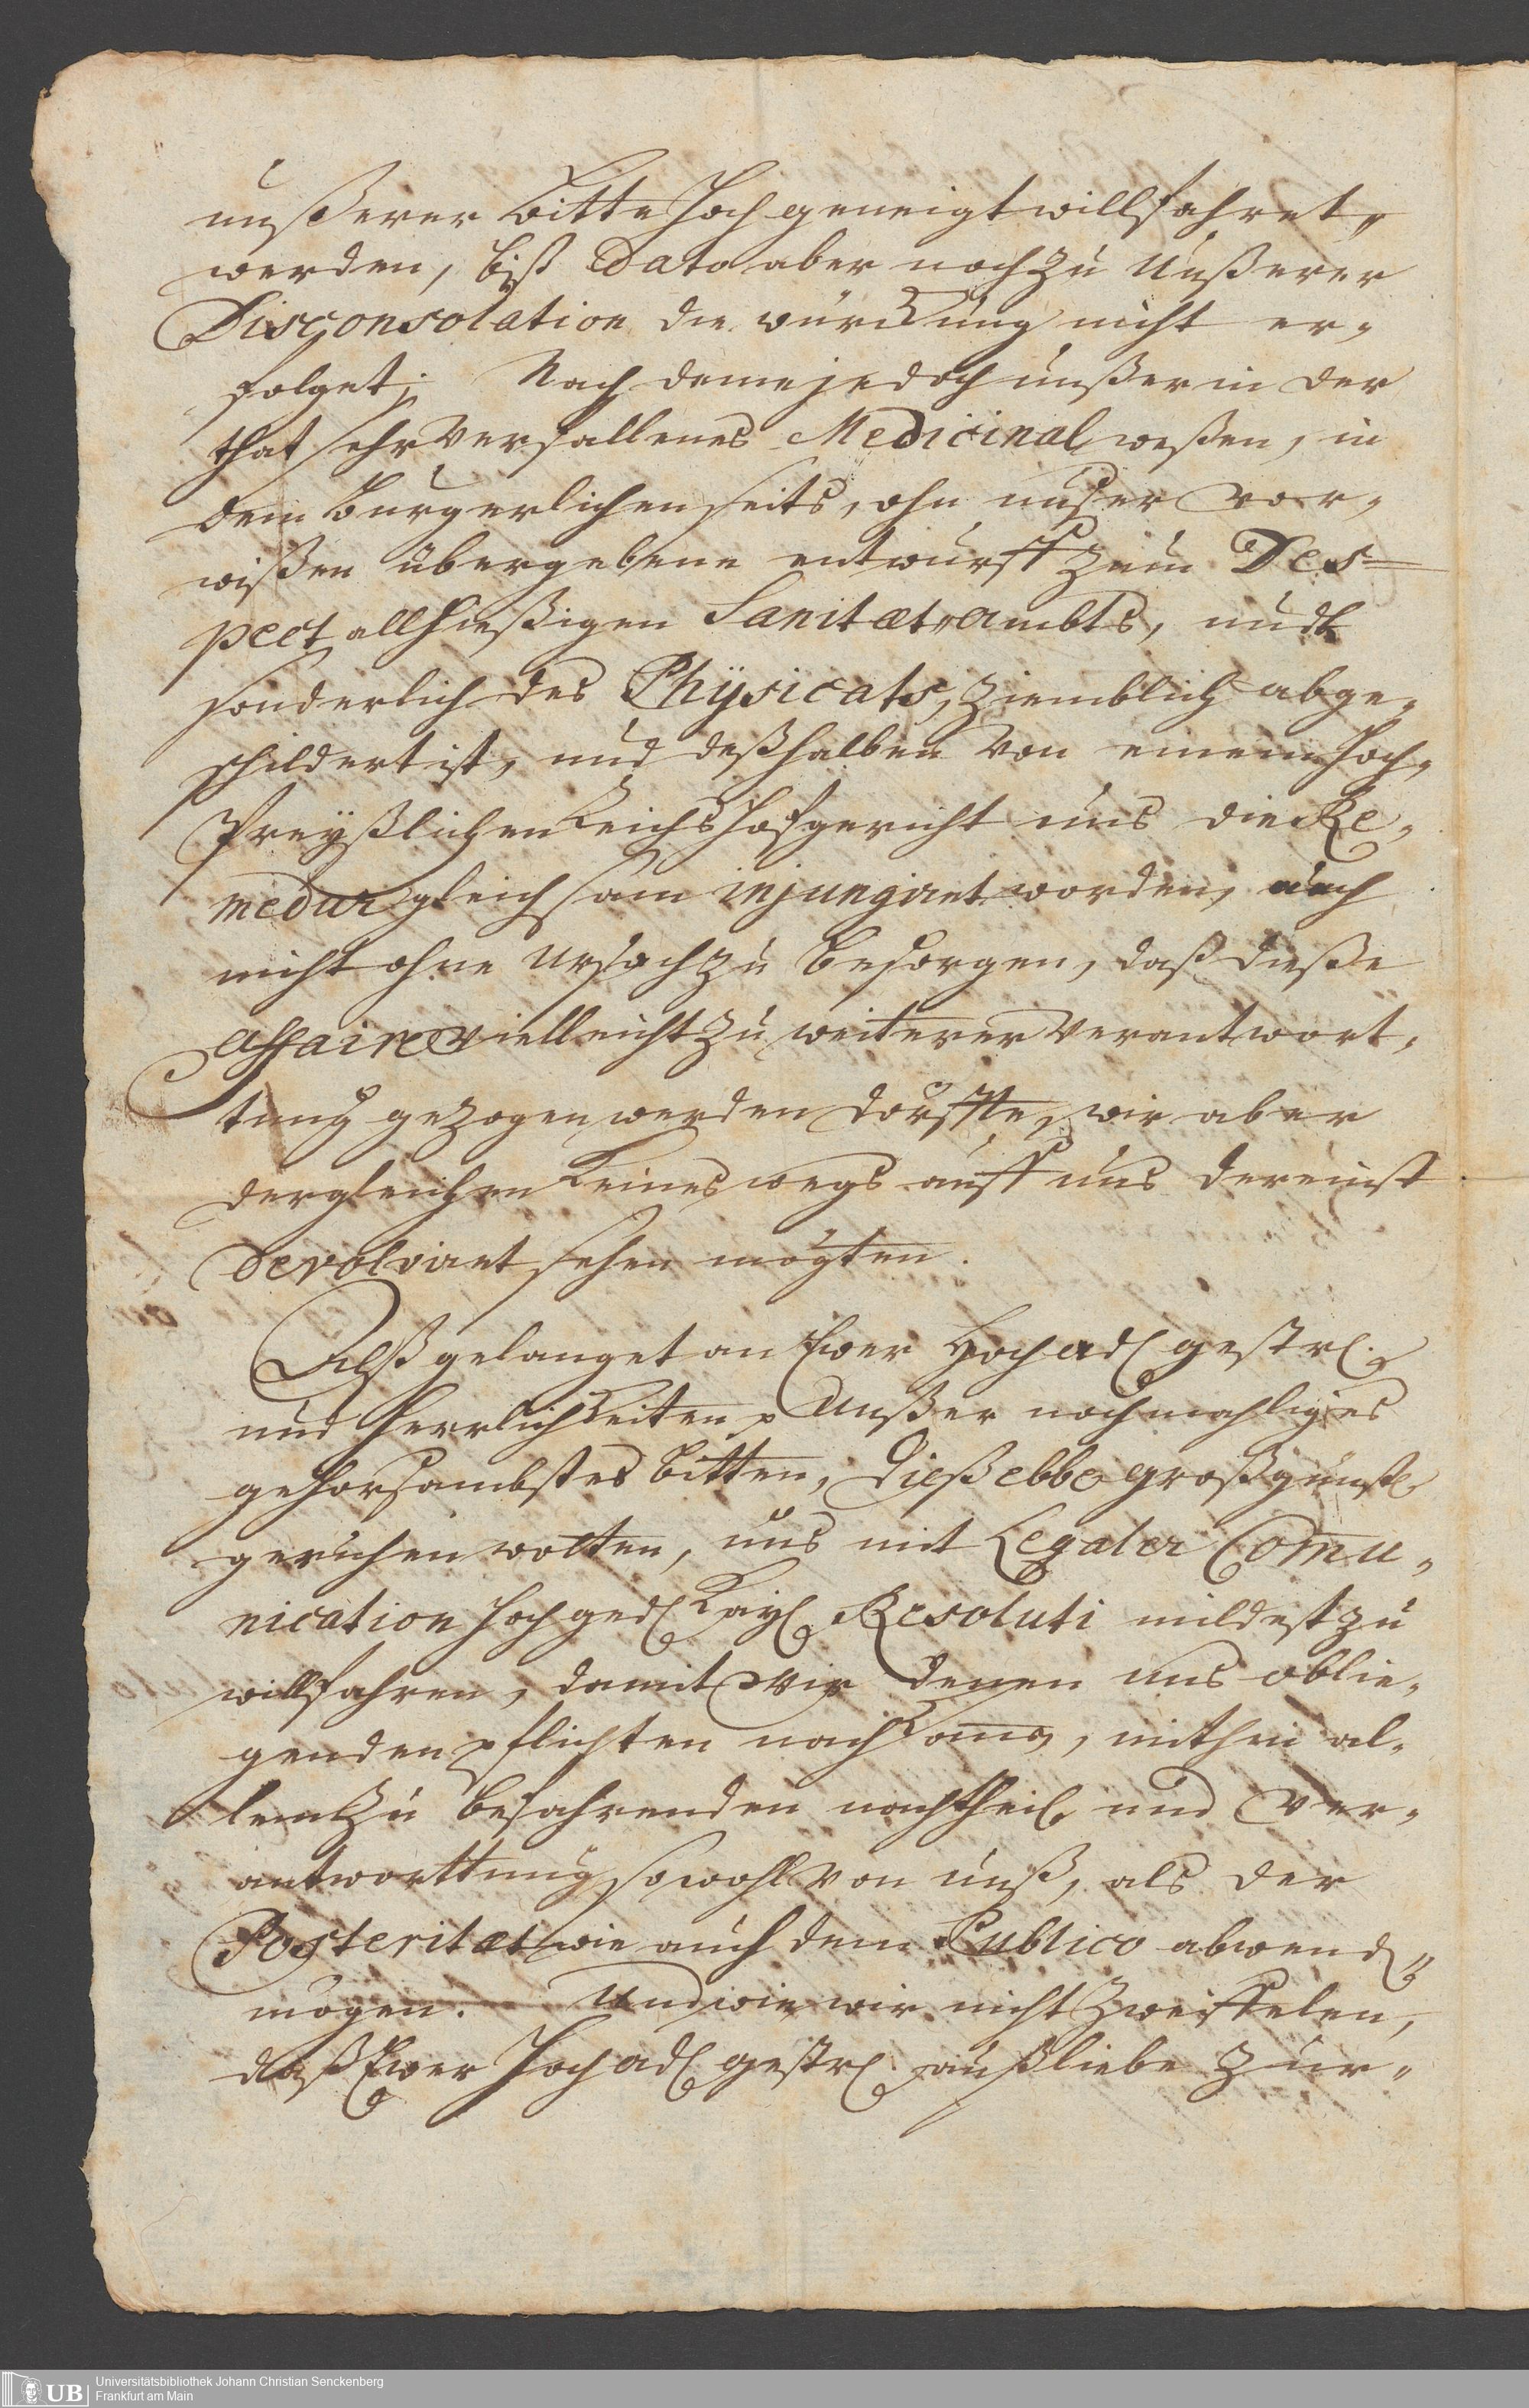 unßerer Bitte hochgeneigt willfahret
werden, biß Dato aber noch zu Unßerer
Disconsolation die würckung nicht er-
folget; Nach deme jedoch unßer in der
that sehr verfallenes Medicinal weßen, in
dem Burgerlichen seits, ohn unßer vor-
wißen übergebene entwurff zum Des-
pect allhießigen Sanitæt Ambts, undt
sonderlich des Physicats, ziemblich abge-
schildert ist, und deßhalben von einem Hoch-
Preyßlichen Reichshofgericht uns die Re-
medur gleichsam injungiret worden, auch
nicht ohne Ursach zu besorgen, daß dieße
Affaire vielleicht zu weiterer Verantwort-
tung gezogen werden dörffte, wir aber
dergleichen keineswegs auff uns dereinst
devolviret sehen mögten.
Alß gelanget an Ewer Hochadl gestrl.
und Herrlichkeiten p Unßer nochmahliges
gehorsambstes bitten, Dießelbe großgünstl
geruhen wolten, uns mit Legaler Comu-
nication hochgedl Kayl Resoluti mildest zu
willfahren, damit Wir denen uns oblie-
genden pflichten nachkomen, mithin al-
lem zu befahrenden nachtheil und Ver-
antworttung sowohl von unß, als der
Posteritæt wie auch dem Publico abwend
mögen. Und wie wir nicht zweiffelen,
daß Ewer Hochadl gestrl. auß liebe zur
Universitätsbibliothek Johann Christian Senckenberg
Frankfurt am Main
UB